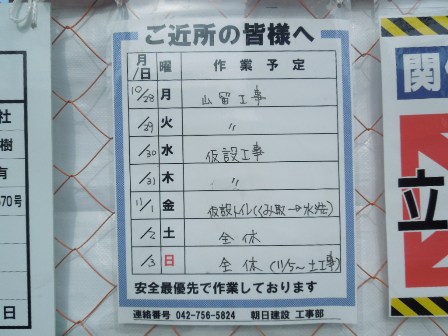 ご近所の皆様へ
月/日 曜 作業予定
10/28 月 山留工事
/29 火 〃
/30 水 仮設工事
/31 木 〃
11/1 金 仮設トイレ(くみ取→水洗)
/2 土 全休
/3 日 全休 (11/5〜土工事)
安全最優先で作業しております
連絡番号 042-756-5824 朝日建設 工事部
社
樹
有
670号
日
関
立